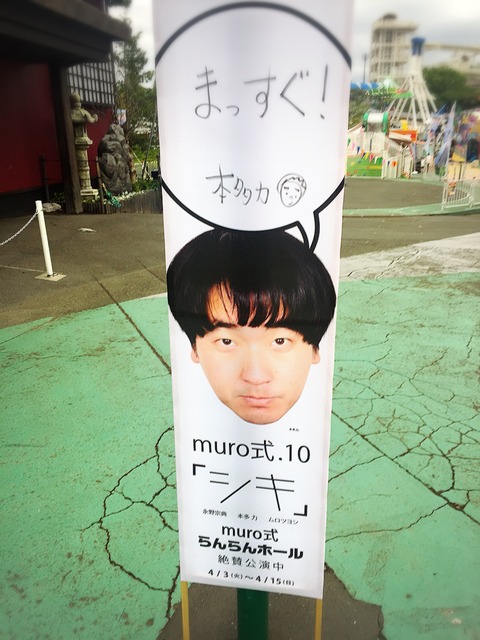 まっすぐ!
本多力
muro式.10
「シキ」
永野宗典 本多力 ムロツヨシ
muro式
らんらんホール
絶賛公演中
4/3(火)～4/15(日)